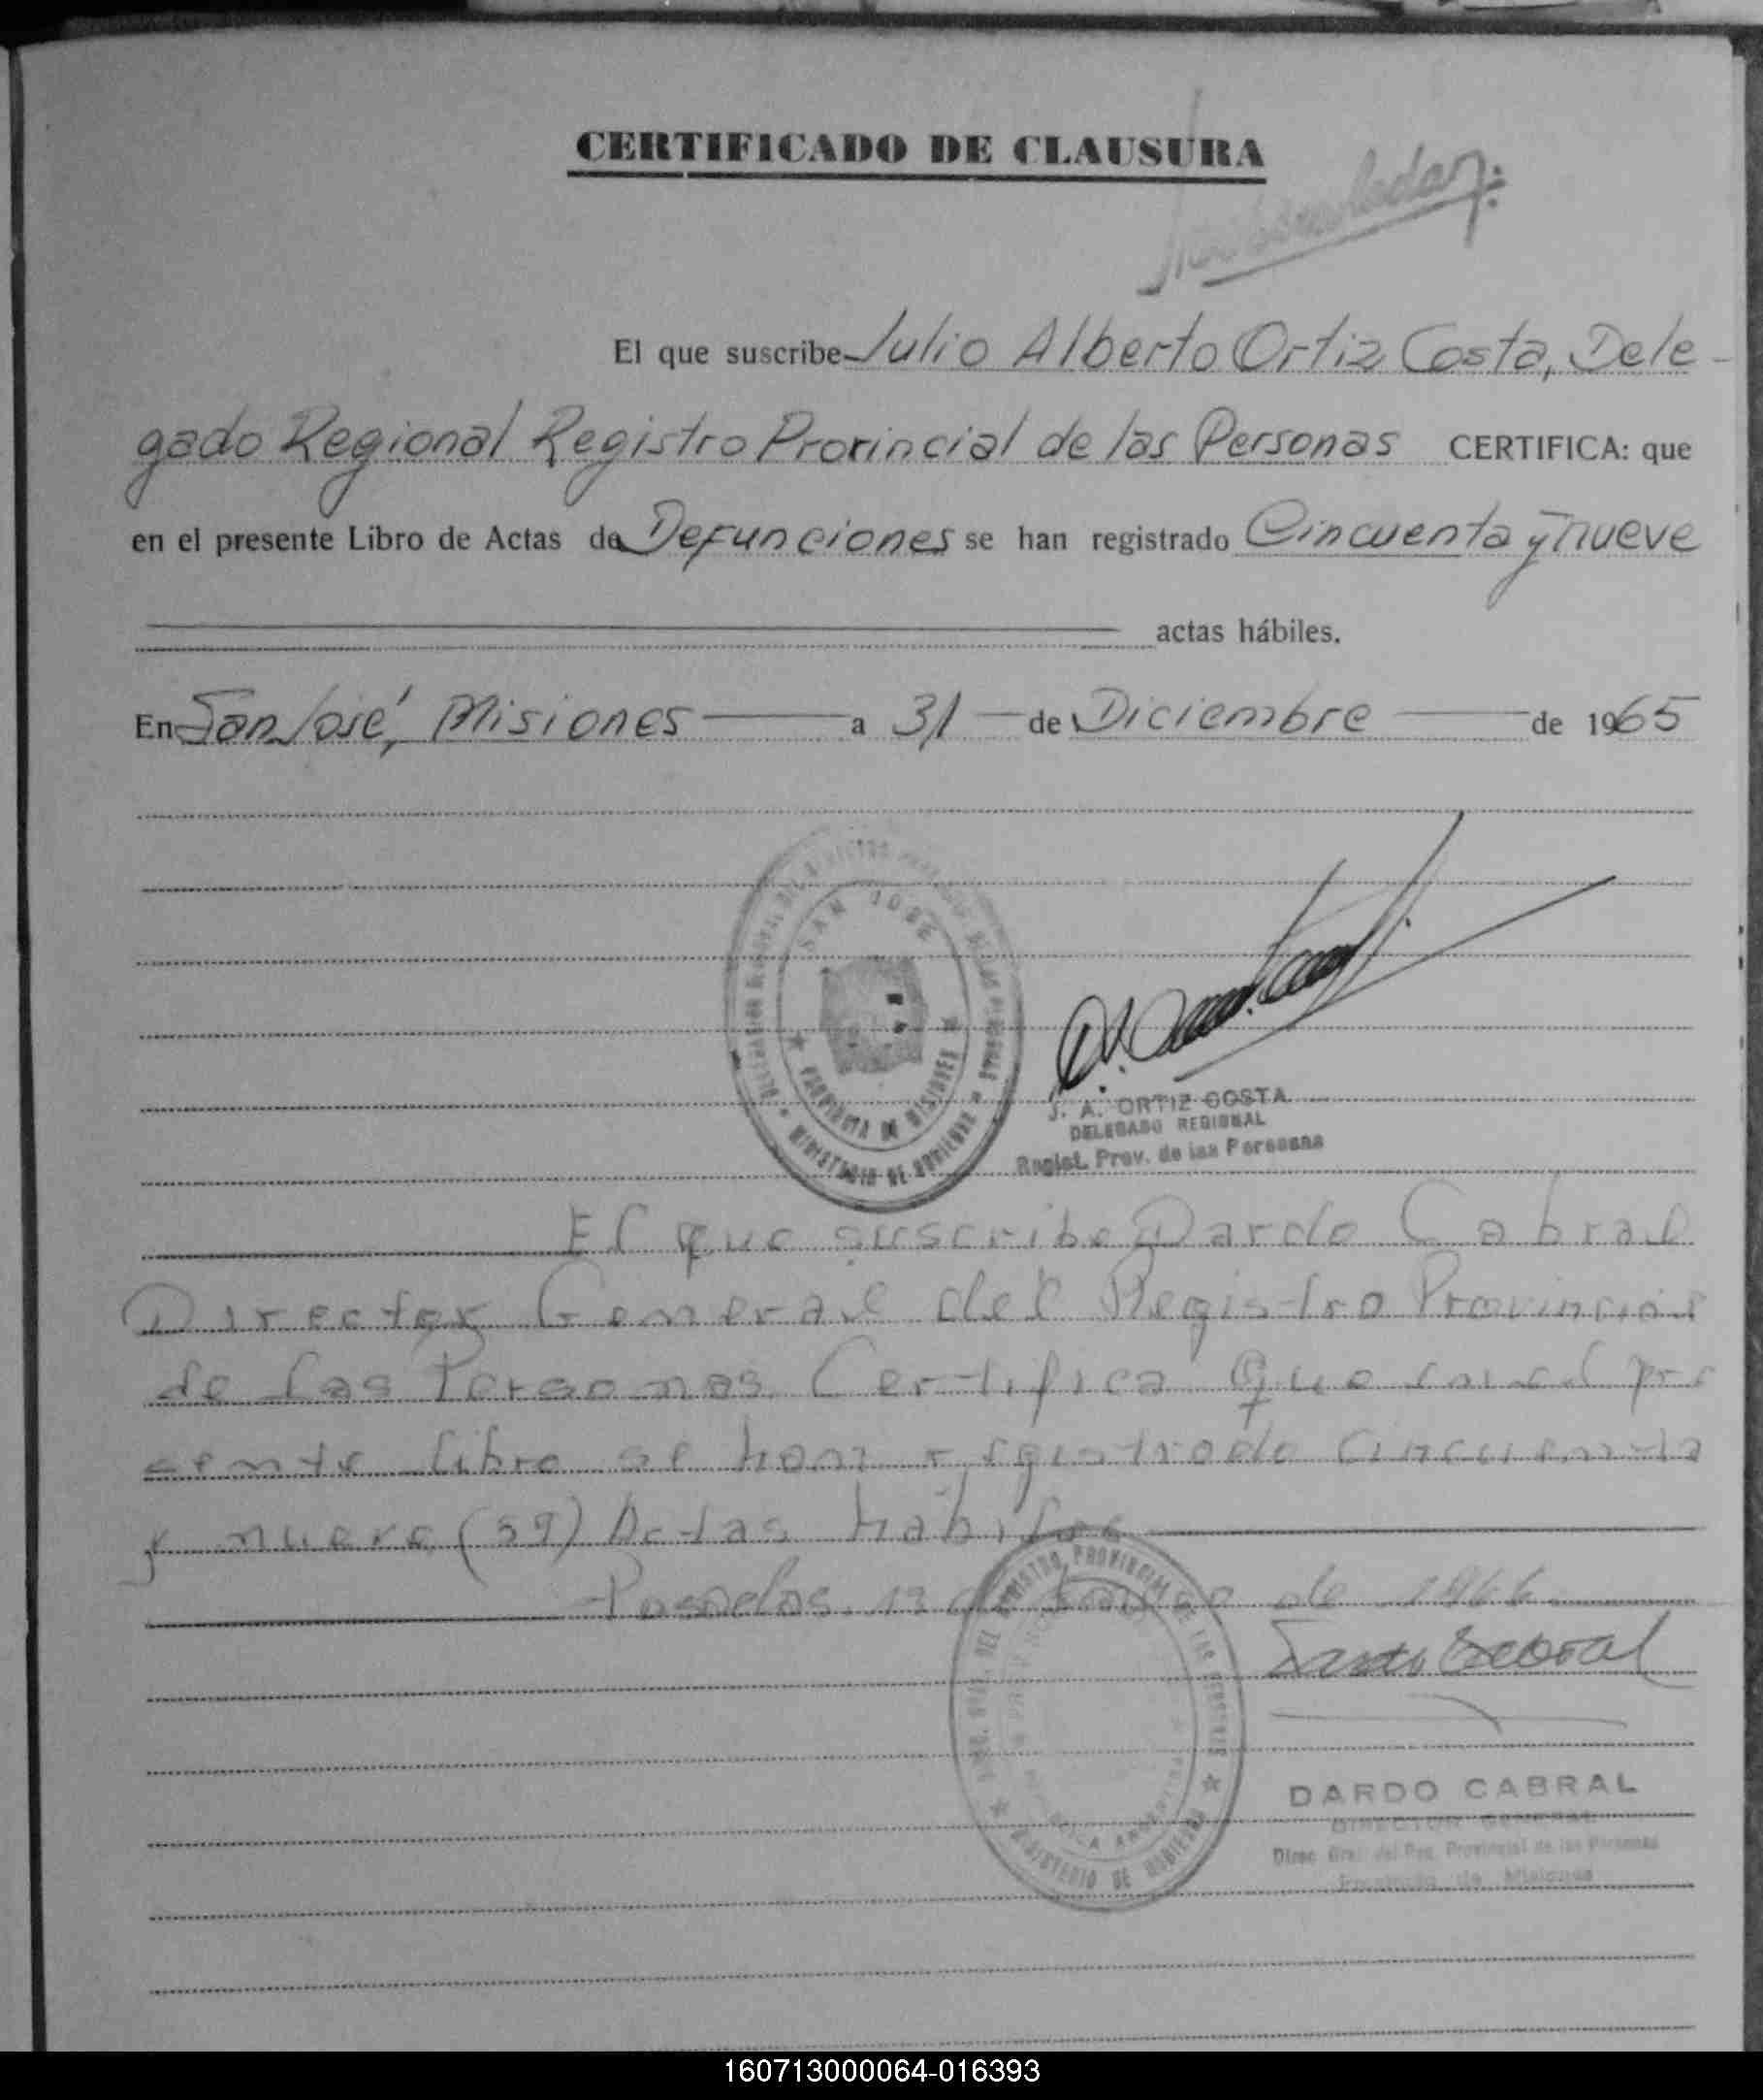 CERTIFICADO DE CLAUSURA
El que suscribe Julio Alberto Ortiz Costa, Dele-
gado Regional Registro Provincial de las Personas CERTIFICA: que
en el presente Libro de Actas de Defunciones se han registrado Cincuenta y nueve
actas hábiles.
En San José, Misiones a 31 de Diciembre de 1965
SAN JOSE
PROVINCIA DE MISIONES
MINISTERIO DE GOBIERNO
J. A. ORTIZ COSTA
DELEGADO REGIONAL
Regist. Prov. de las Personas
El que suscribe Dardo Cabral
Director General del Registro Provincial
de las Personas Certifica que en el pre
sente libro se han registrado cincuenta
y nueve (59) Actas habiles
Posadas, 13 de de 1966
REGISTRO PROVINCIAL DE LAS PERSONAS
MINISTERIO DE GOBIERNO
Dardo Cabral
DARDO CABRAL
DIRECTOR GENERAL
Direc. Gral. del Reg. Provincial de las Personas
Provincia de Misiones
160713000064-016393